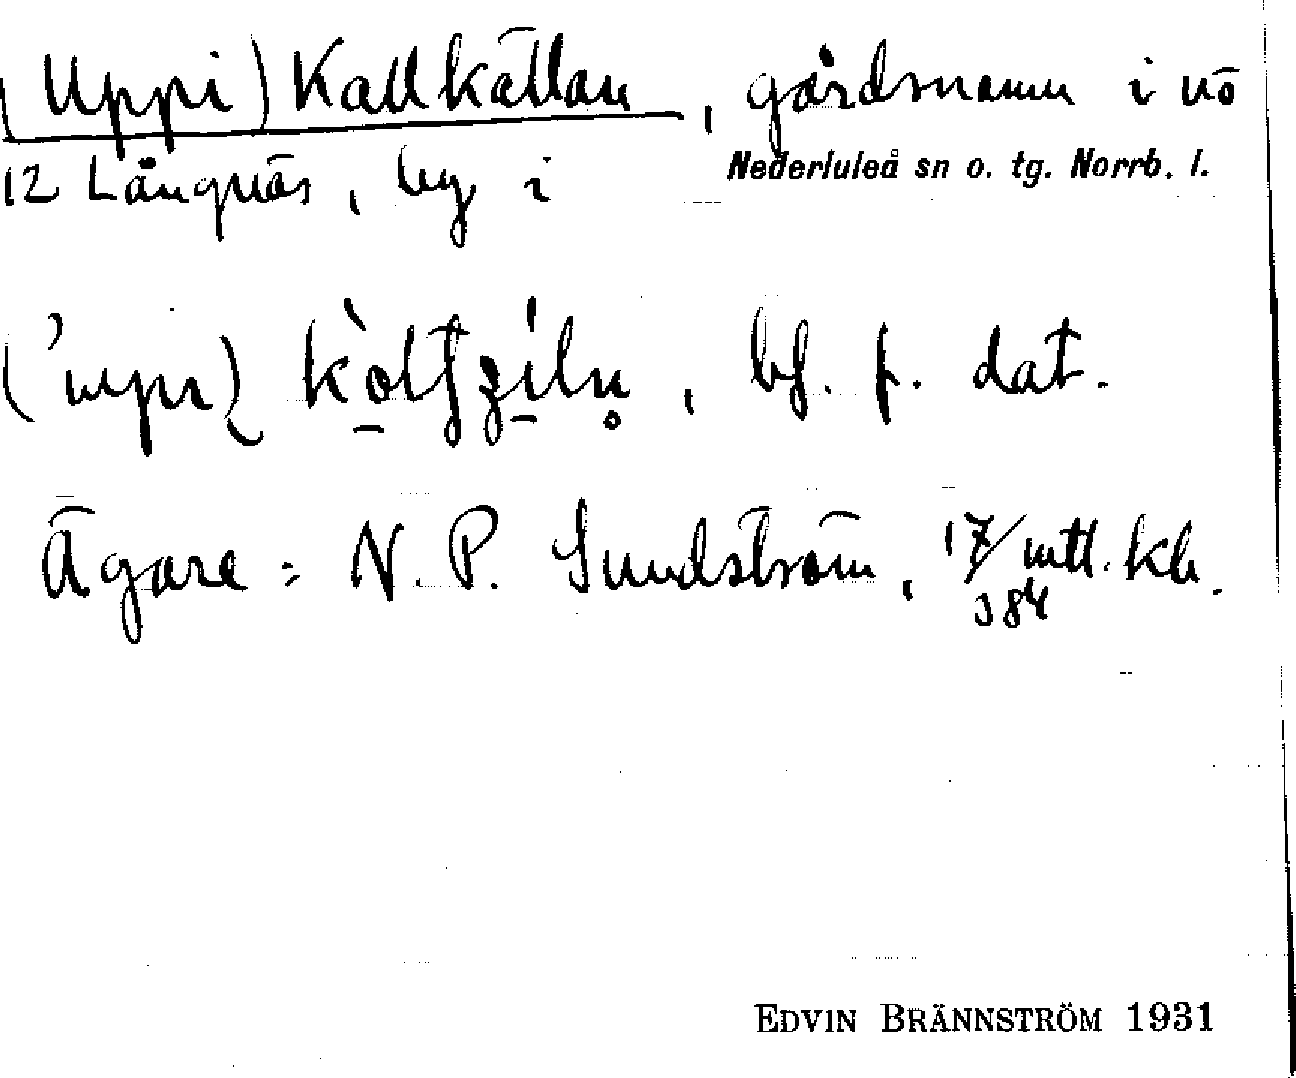 (Uppi) Kallkällan, gårdsnamn i nö
12 Långnäs, by i Nederluleå sn o. tg. Norrb. l.
bf. f. dat.
Ägare: N. P. Sundström, 17/384 mtl. kb.
EDVIN BRÄNNSTRÖM 1931